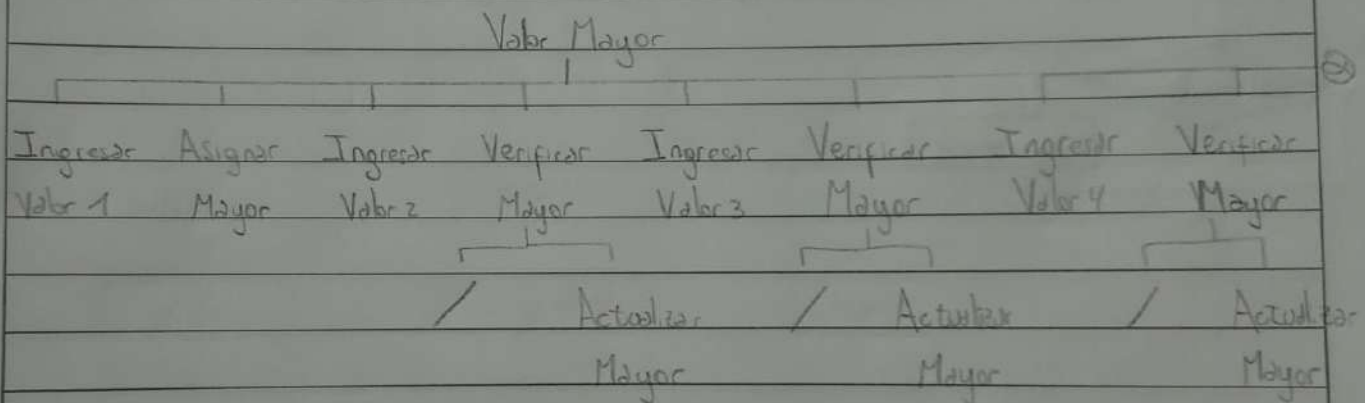 Valor Mayor
Ingresar Asignar Ingresar Verificar Ingresar Verificar Ingresar Verificar
Valor 1 Mayor Valor 2 Mayor Valor 3 Mayor Valor 4 Mayor
/ Actualizar / Actualizar / Actualizar
Mayor Mayor Mayor